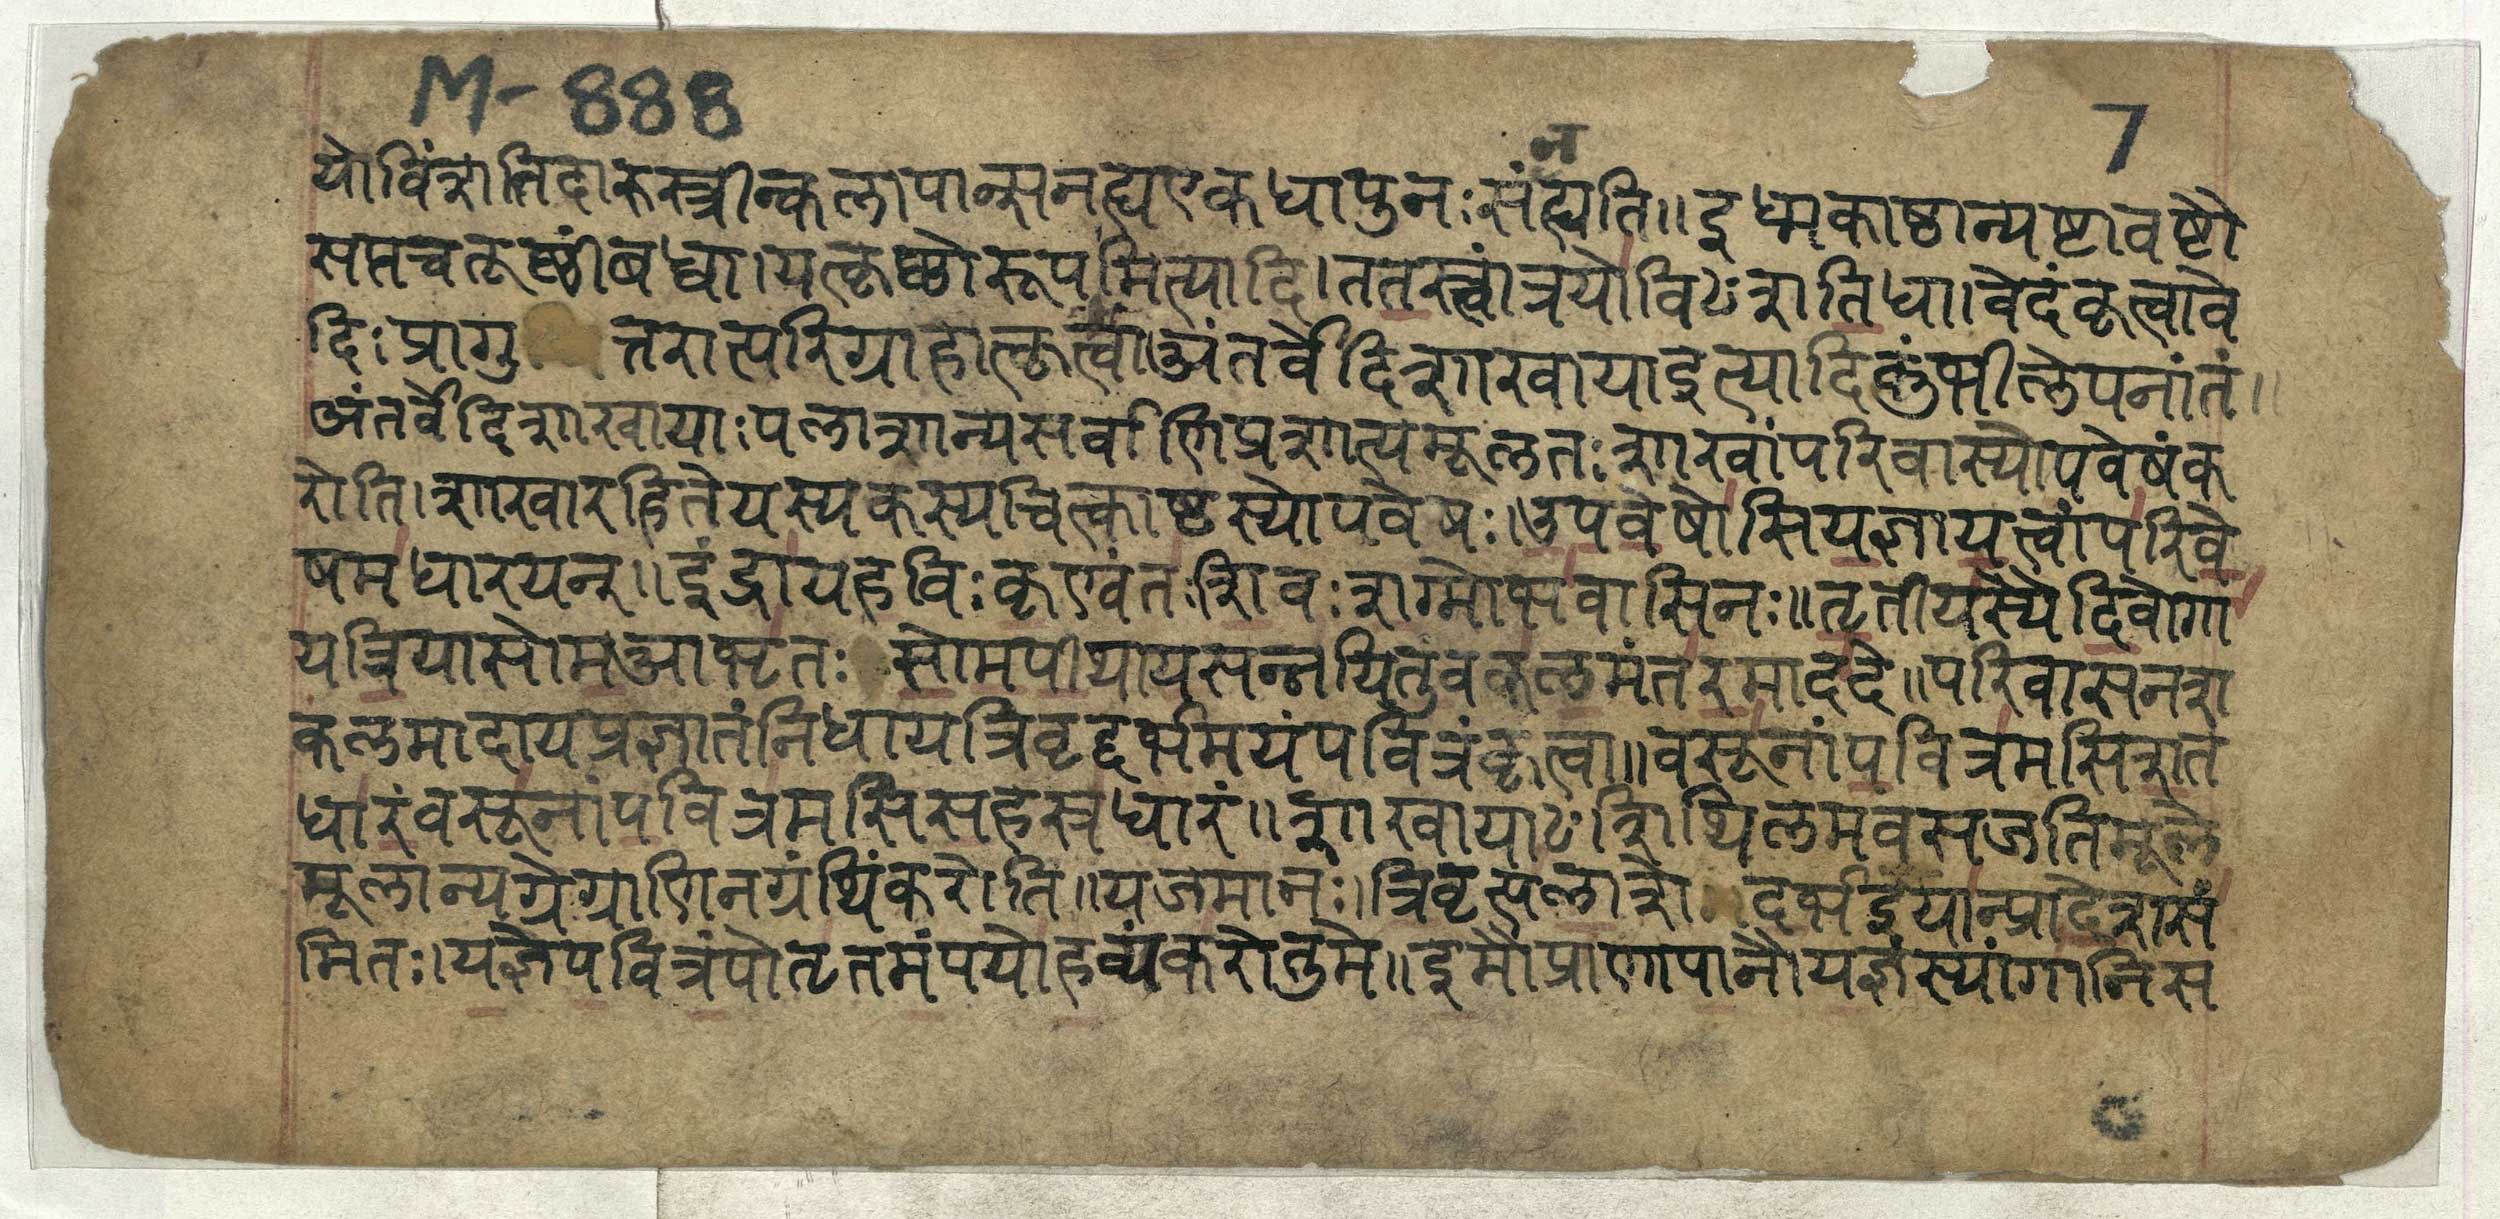 M-888
7
न
योविंशतिदारुस्त्रीन्कलापान्सनह्यएकधापुनःसंह्यति॥इध्मकाष्ठान्यष्टावष्टौ
सप्तचतूष्णींबध्वा।यत्कृष्णोरूपमित्यादि।ततस्त्वांत्रयोविꣳशतिधा।वेदंकृत्वावे
दिःप्रागु त्तरात्परिग्राहात्कृत्वाअंतर्वेदिशाखायाइत्यादिकुंभीलेपनांतं॥
अंतर्वेदिशाखायाःपलाशान्यसर्वाणिप्रशात्यमूलतःशाखांपरिवास्योपवेषंक
रोति।शाखारहितेयस्यकस्यचित्काष्टस्योपवेषः।उपवेषोसियज्ञायत्वांपरिवे
षमधारयन्॥इंद्रायहविःकृण्वंतःशिवःशग्मोभवासिनः॥तृतीयस्यैदिवोगा
यत्रियासोमआभृतः सोमपीथायसन्नयितुंवकलमंतरमाददे॥परिवासनश
कलमादायप्रज्ञातंनिधायत्रिवृद्दर्भमयंपवित्रंकृत्वा॥वसूनांपवित्रमसिशत
धारंवसूनांपवित्रमसिसहस्रधारं॥शाखायाꣳशिथिलमवसजतिमूले
मूलान्यग्रेग्राणिनग्रंथिंकरोति॥यजमानः।त्रिवृत्पलाशे दर्भइयान्प्रादेशसं
मितः।यज्ञेपवित्रंपोतृतमंपयोहव्यंकरोतुमे॥इमौप्राणापानौयज्ञस्यांगानिस